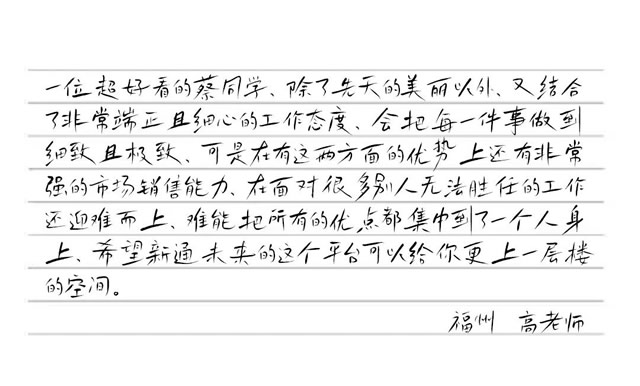 一位超好看的蔡同学、除了先天的美丽以外、又结合
了非常端正且细心的工作态度、会把每一件事做到
细致且极致、可是在有这两方面的优势上还有非常
强的市场销售能力、在面对很多别人无法胜任的工作
还迎难而上、难能把所有的优点都集中到了一个人身
上、希望新通未来的这个平台可以给你更上一层楼
的空间。
福州 高老师